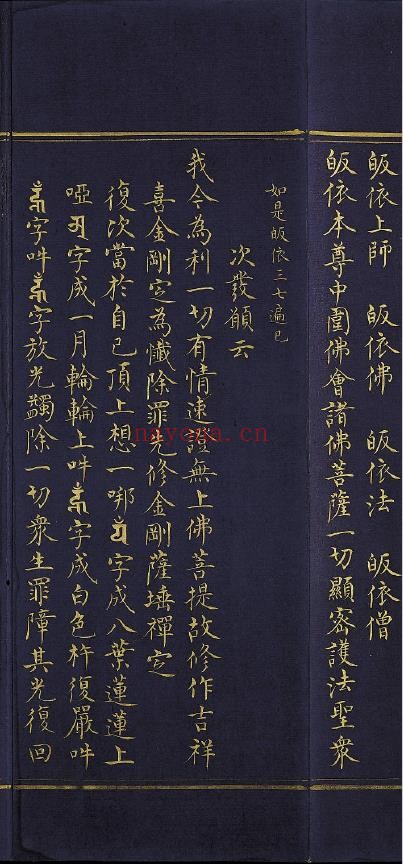 皈依上師 皈依佛 皈依法 皈依僧
皈依本尊中圍佛會諸佛菩薩一切顯密護法聖衆
如是皈依三七遍已
次發願云
我今為利一切有情速證無上佛菩提故修作吉祥
喜金剛定為懺除罪先修金剛薩埵禪定
復次當於自己頂上想一㖿字成八葉蓮蓮上
啞字成一月輪輪上吽字成白色杵復嚴吽
字吽字放光蠲除一切衆生罪障其光復回
nayona.cn